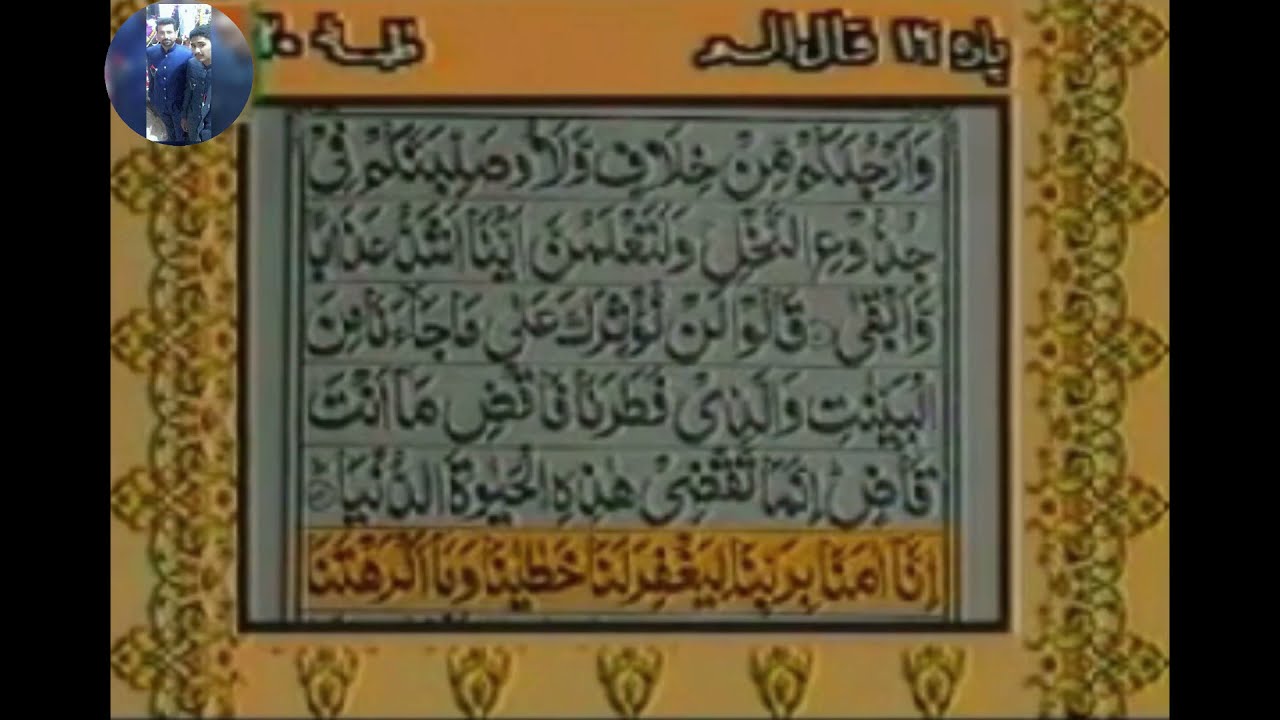 پارہ ۱۶ قال الم طٰہٰ ۲۰
وَاَرْجُلَكُمْ مِّنْ خِلَافٍ وَّلَاُوصَلِّبَنَّكُمْ فِیْ
جُذُوْعِ النَّخْلِ وَلَتَعْلَمُنَّ اَیُّنَاۤ اَشَدُّ عَذَابًا
وَّاَبْقٰی قَالُوْا لَنْ نُّؤْثِرَكَ عَلٰی مَا جَآءَنَا مِنَ
الْبَیِّنٰتِ وَالَّذِیْ فَطَرَنَا فَاقْضِ مَاۤ اَنْتَ
قَاضٍ اِنَّمَا تَقْضِیْ هٰذِهِ الْحَیٰوةَ الدُّنْیَا
اِنَّاۤ اٰمَنَّا بِرَبِّنَا لِیَغْفِرَ لَنَا خَطٰیٰنَا وَمَاۤ اَكْرَهْتَنَا